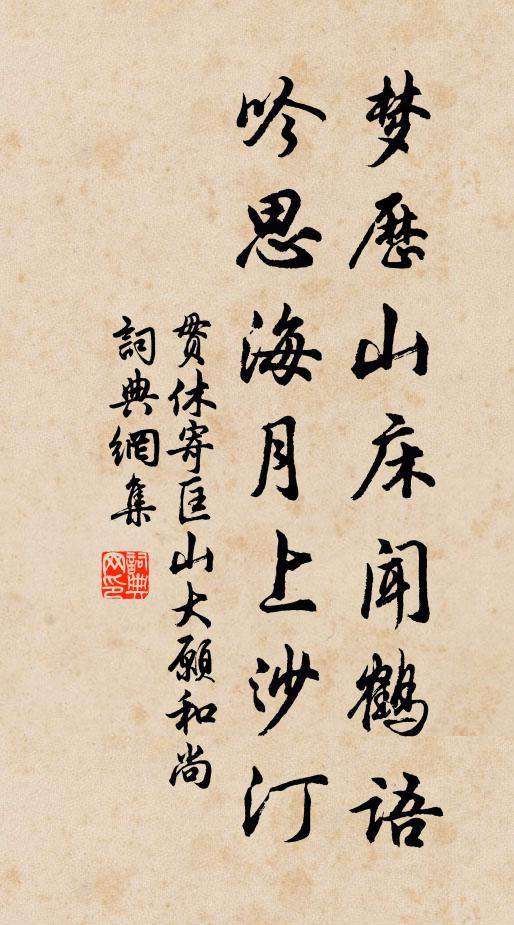 梦历山床闻鹤语
吟思海月上沙汀
贯休寄匡山大愿和尚
詞典網集
詞典网印